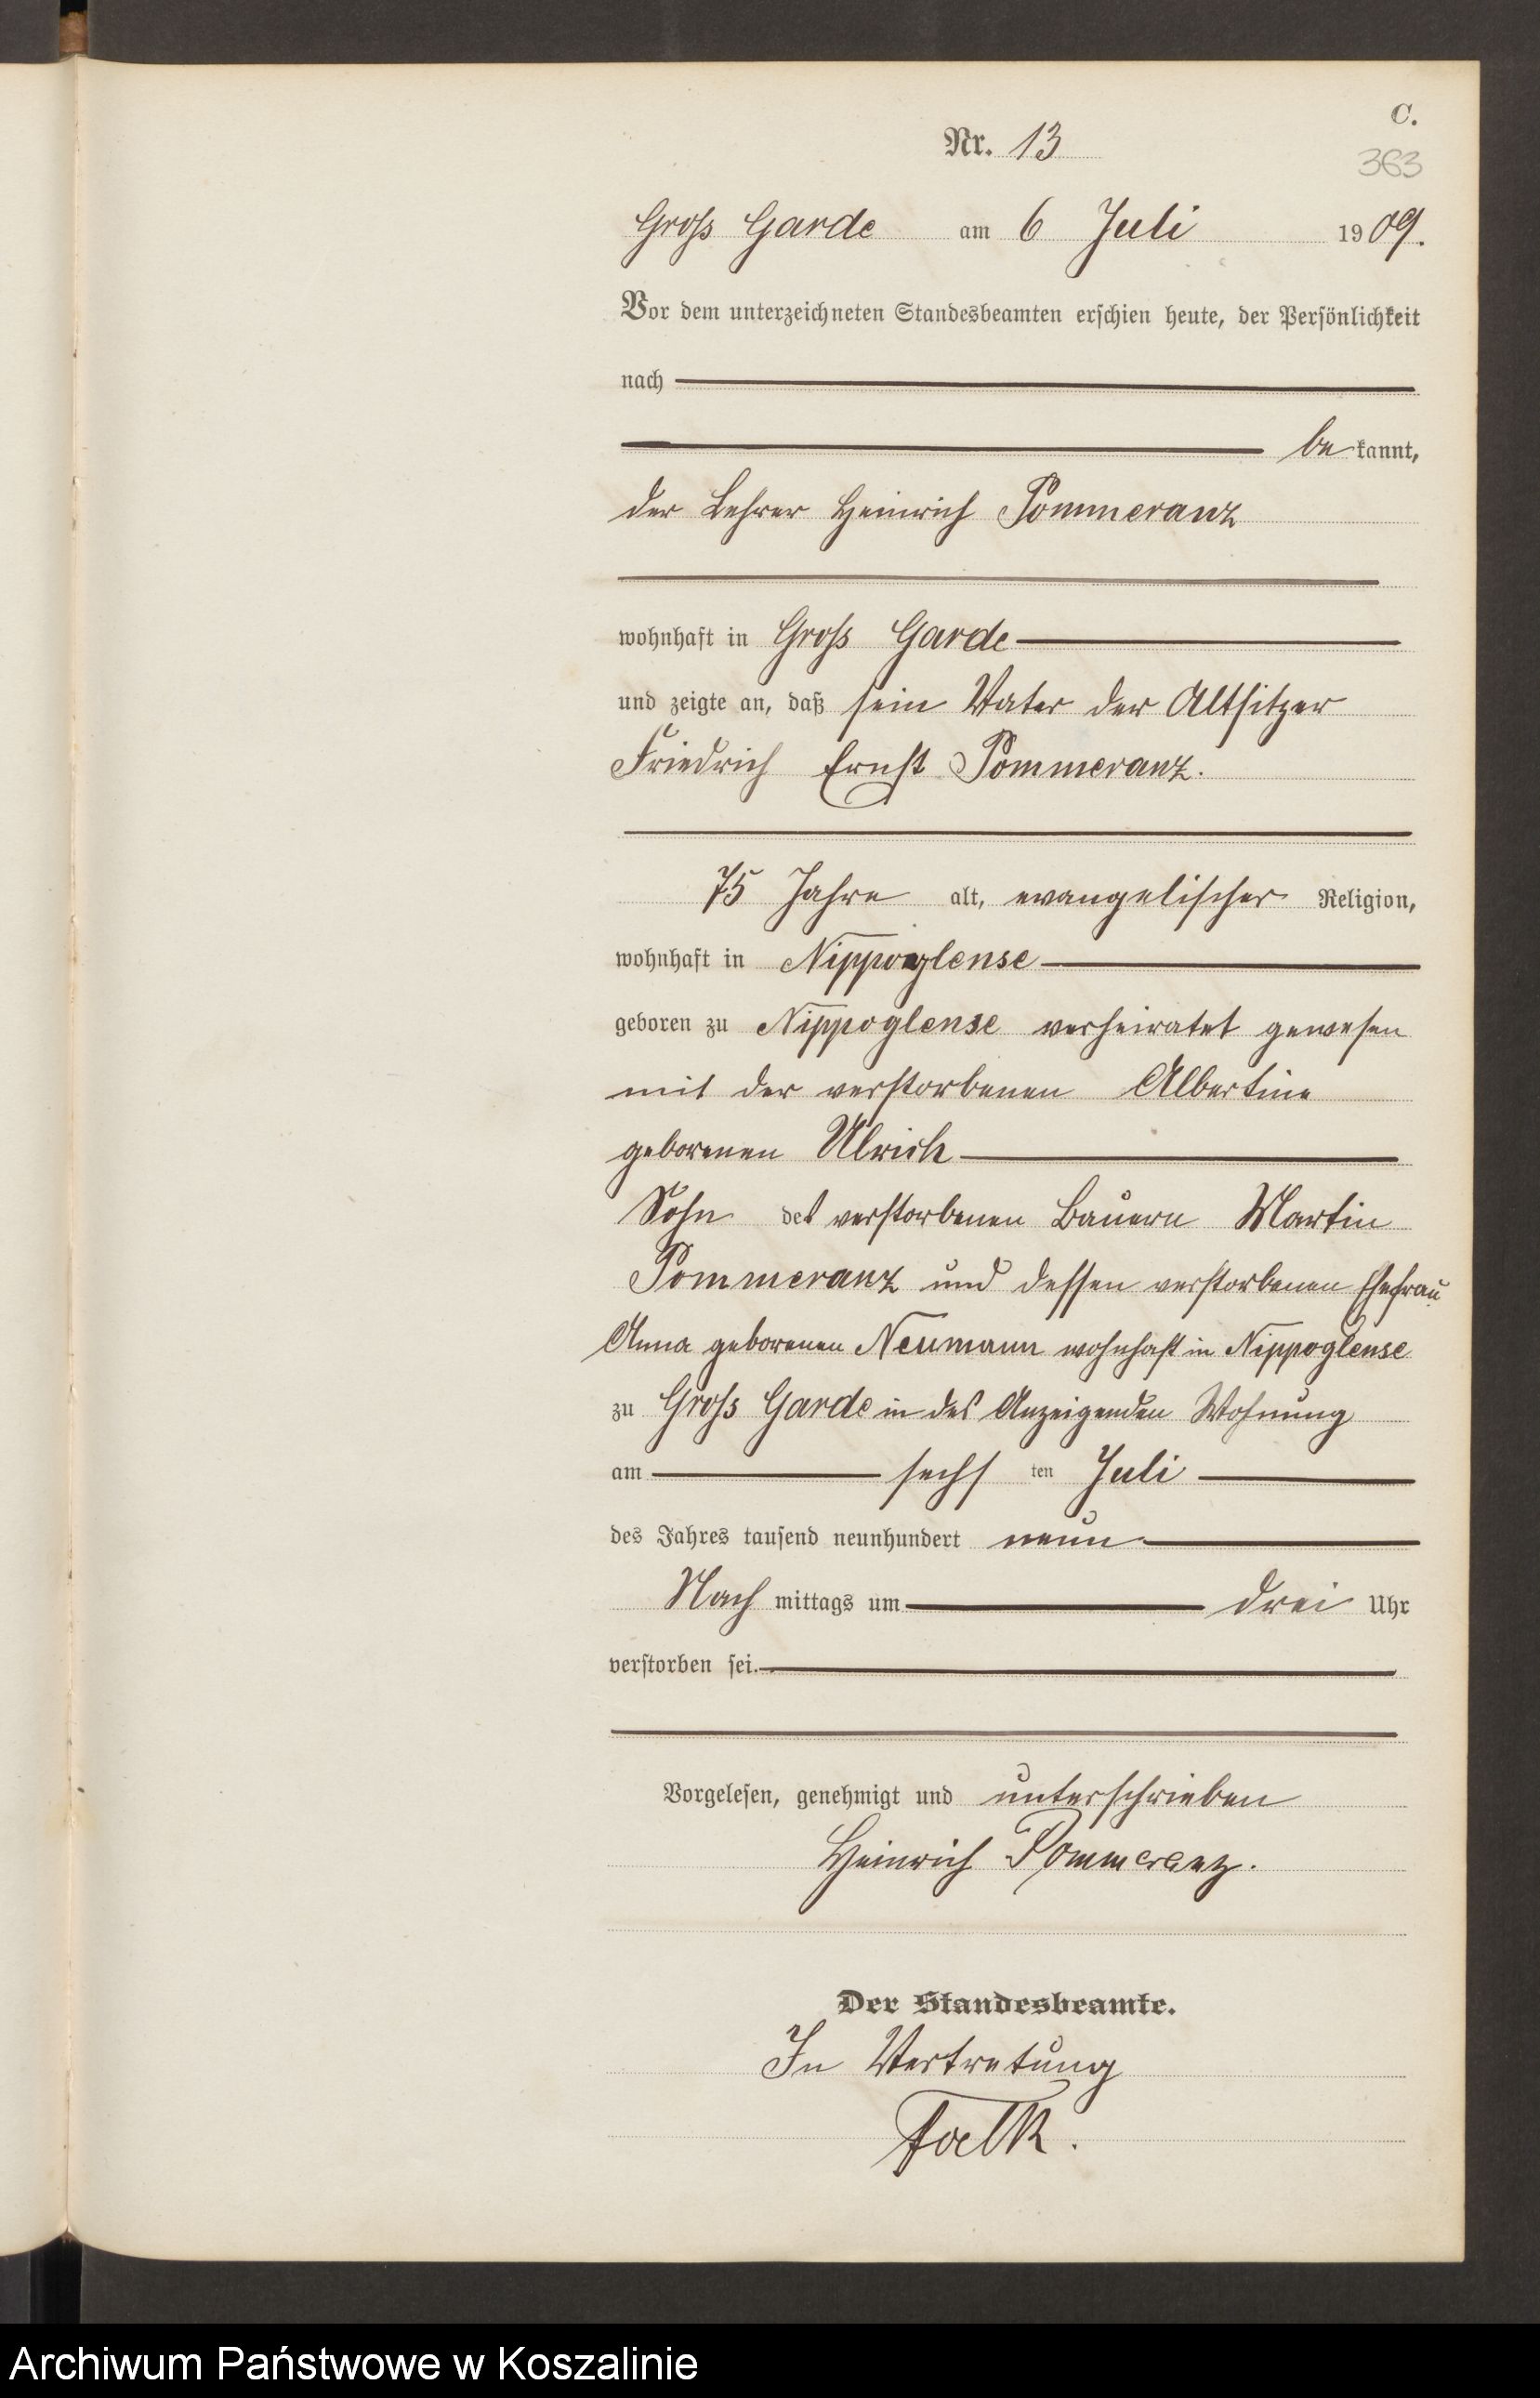 C.
Nr. 13
363
Groß Garde am 6 Juli 1909.
Vor dem unterzeichneten Standesbeamten erschien heute, der Persönlichkeit
nach
bekannt,
der Lehrer Heinrich Pommeranz
wohnhaft in Groß Garde
und zeigte an, daß sein Vater der Altsitzer
Friedrich Ernst Pommeranz.
75 Jahre alt, evangelischer Religion,
wohnhaft in Nippoglense
geboren zu Nippoglense verheiratet gewesen
mit der verstorbenen Albertine
geborenen Ulrich
Sohn des verstorbenen Bauern Martin
Pommeranz und dessen verstorbenen Ehefrau
Anna geborenen Neumann wohnhaft in Nippoglense
zu Groß Garde in des Anzeigenden Wohnung
am sechsten Juli
des Jahres tausend neunhundert neun
Nachmittags um drei Uhr
verstorben sei.
Vorgelesen, genehmigt und unterschrieben
Heinrich Pommeranz.
Der Standesbeamte.
In Vertretung
Falk.
Archiwum Państwowe w Koszalinie